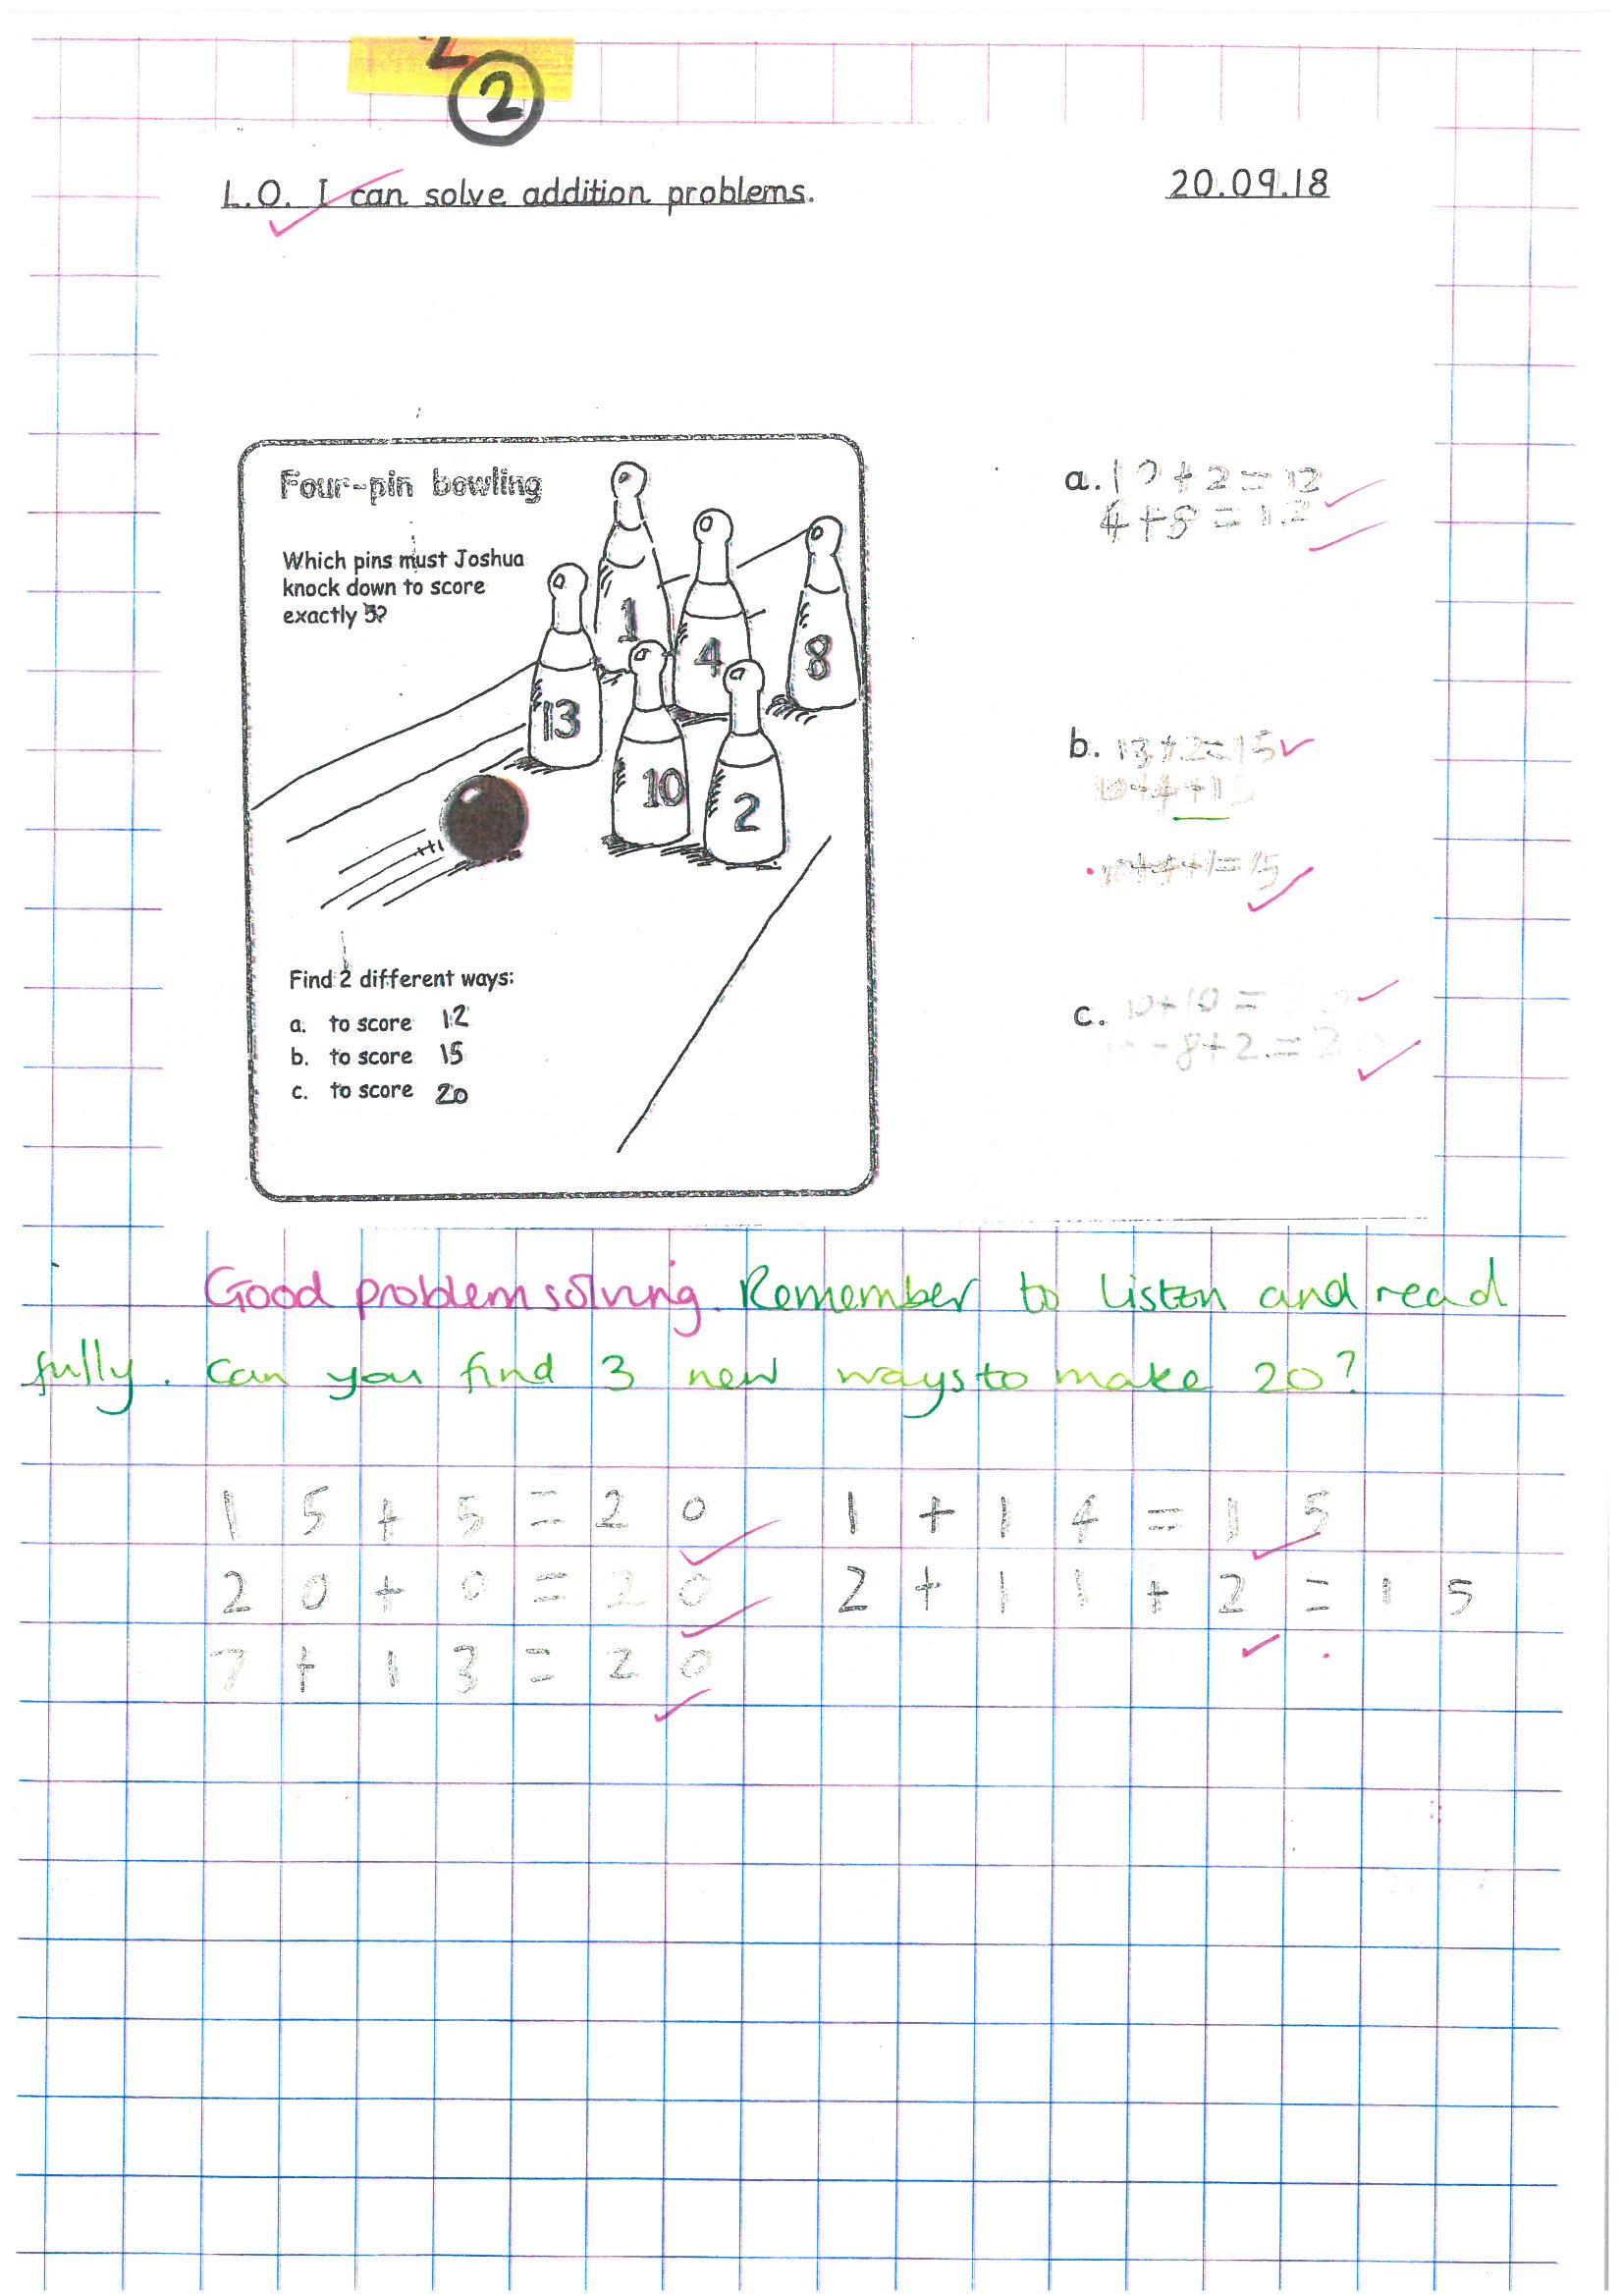 2
L.O. I can solve addition problems.
20.09.18
Four-pin bowling
Which pins must Joshua
knock down to score
exactly 5?
1
4
8
13
10
2
Find 2 different ways:
a. to score 12
b. to score 15
c. to score 20
a. 10+2=12
4+8=12
b. 13+2=15
10+4+15
10+4+1=15
c. 10+10=20
8+2=20
Good problem solving. Remember to listen and read
fully. Can you find 3 new ways to make 20?
15+5=20
1+14=15
20+0=20
2+11+2=15
7+13=20